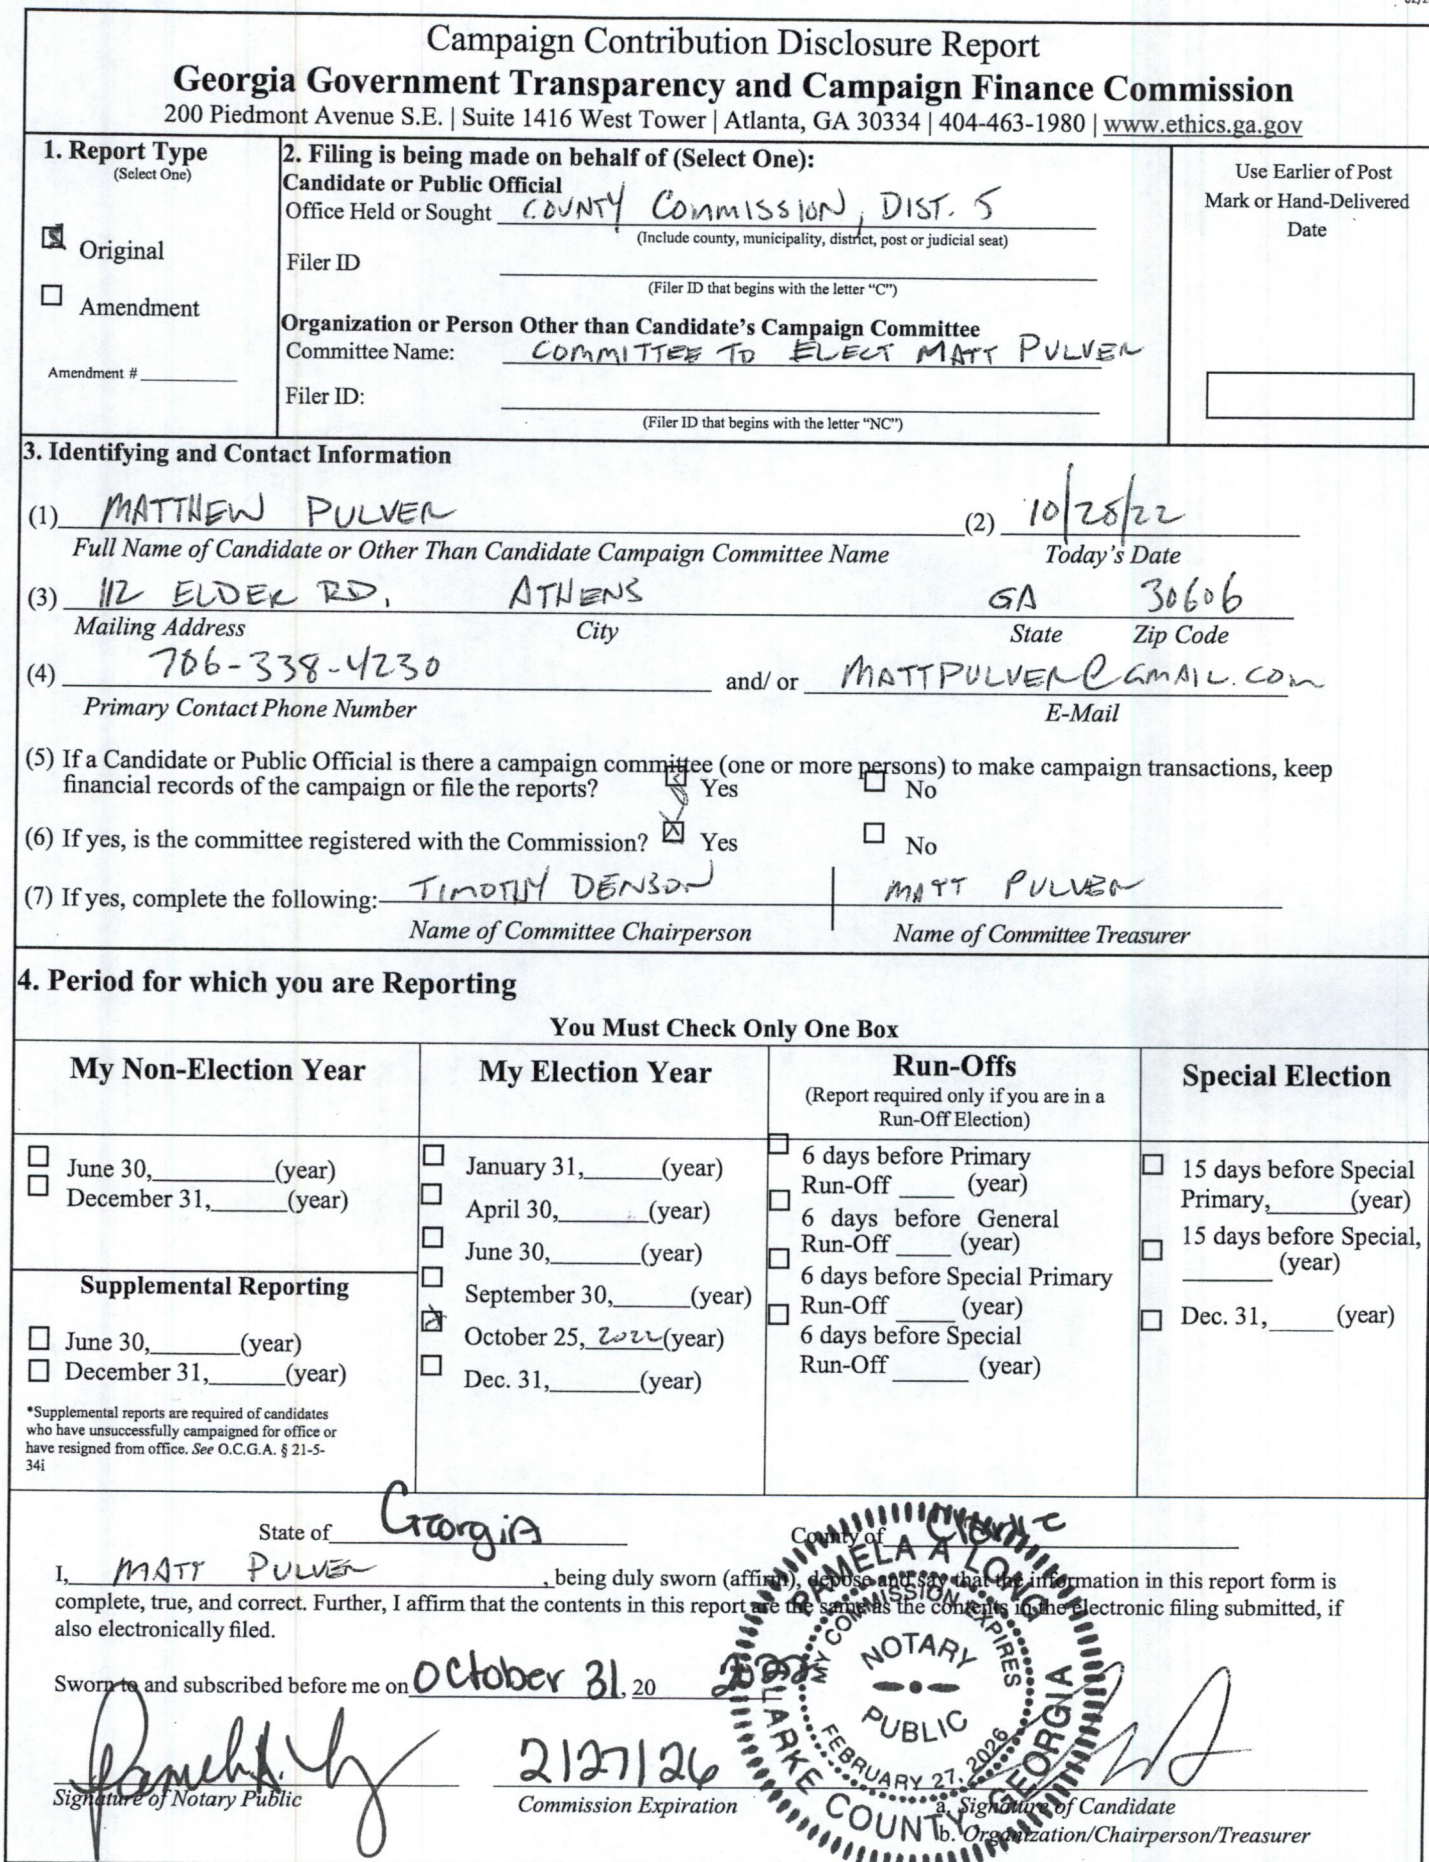 Campaign Contribution Disclosure Report
Georgia Government Transparency and Campaign Finance Commission
200 Piedmont Avenue S.E. | Suite 1416 West Tower | Atlanta, GA 30334 | 404-463-1980 | www.ethics.ga.gov
1. Report Type
(Select One)
Original
Amendment
Amendment #
2. Filing is being made on behalf of (Select One):
Candidate or Public Official
Office Held or Sought COUNTY COMMISSION, DIST. 5
(Include county, municipality, district, post or judicial seat)
Filer ID
(Filer ID that begins with the letter “C”)
Organization or Person Other than Candidate's Campaign Committee
Committee Name: COMMITTEE TO ELECT MATT PULVER
Filer ID:
(Filer ID that begins with the letter “NC”)
Use Earlier of Post
Mark or Hand-Delivered
Date
3. Identifying and Contact Information
(1) MATTHEW PULVER (2) 10/28/22
Full Name of Candidate or Other Than Candidate Campaign Committee Name Today's Date
(3) 112 ELDER RD, ATHENS GA 30606
Mailing Address City State Zip Code
(4) 706-338-4230 and/ or MATTPULVER@GMAIL.COM
Primary Contact Phone Number E-Mail
(5) If a Candidate or Public Official is there a campaign committee (one or more persons) to make campaign transactions, keep
financial records of the campaign or file the reports? Yes No
(6) If yes, is the committee registered with the Commission? Yes No
(7) If yes, complete the following: TIMOTHY DENSON MATT PULVER
Name of Committee Chairperson Name of Committee Treasurer
4. Period for which you are Reporting
You Must Check Only One Box
My Non-Election Year
June 30, (year)
December 31, (year)
Supplemental Reporting
June 30, (year)
December 31, (year)
*Supplemental reports are required of candidates
who have unsuccessfully campaigned for office or
have resigned from office. See O.C.G.A. § 21-5-
34i
My Election Year
January 31, (year)
April 30, (year)
June 30, (year)
September 30, (year)
October 25, 2022 (year)
Dec. 31, (year)
Run-Offs
(Report required only if you are in a
Run-Off Election)
6 days before Primary
Run-Off (year)
6 days before General
Run-Off (year)
6 days before Special Primary
Run-Off (year)
6 days before Special
Run-Off (year)
Special Election
15 days before Special
Primary, (year)
15 days before Special,
(year)
Dec. 31, (year)
State of Georgia County of Clarke
I, MATT PULVER, being duly sworn (affirm), depose and say that the information in this report form is
complete, true, and correct. Further, I affirm that the contents in this report are the same as the contents in the electronic filing submitted, if
also electronically filed.
Sworn to and subscribed before me on October 31, 20 2022
2/27/26
Signature of Notary Public Commission Expiration a. Signature of Candidate
b. Organization/Chairperson/Treasurer
PAMELA A LONG
MY COMMISSION EXPIRES
NOTARY
PUBLIC
FEBRUARY 27, 2026
CLARKE COUNTY, GEORGIA